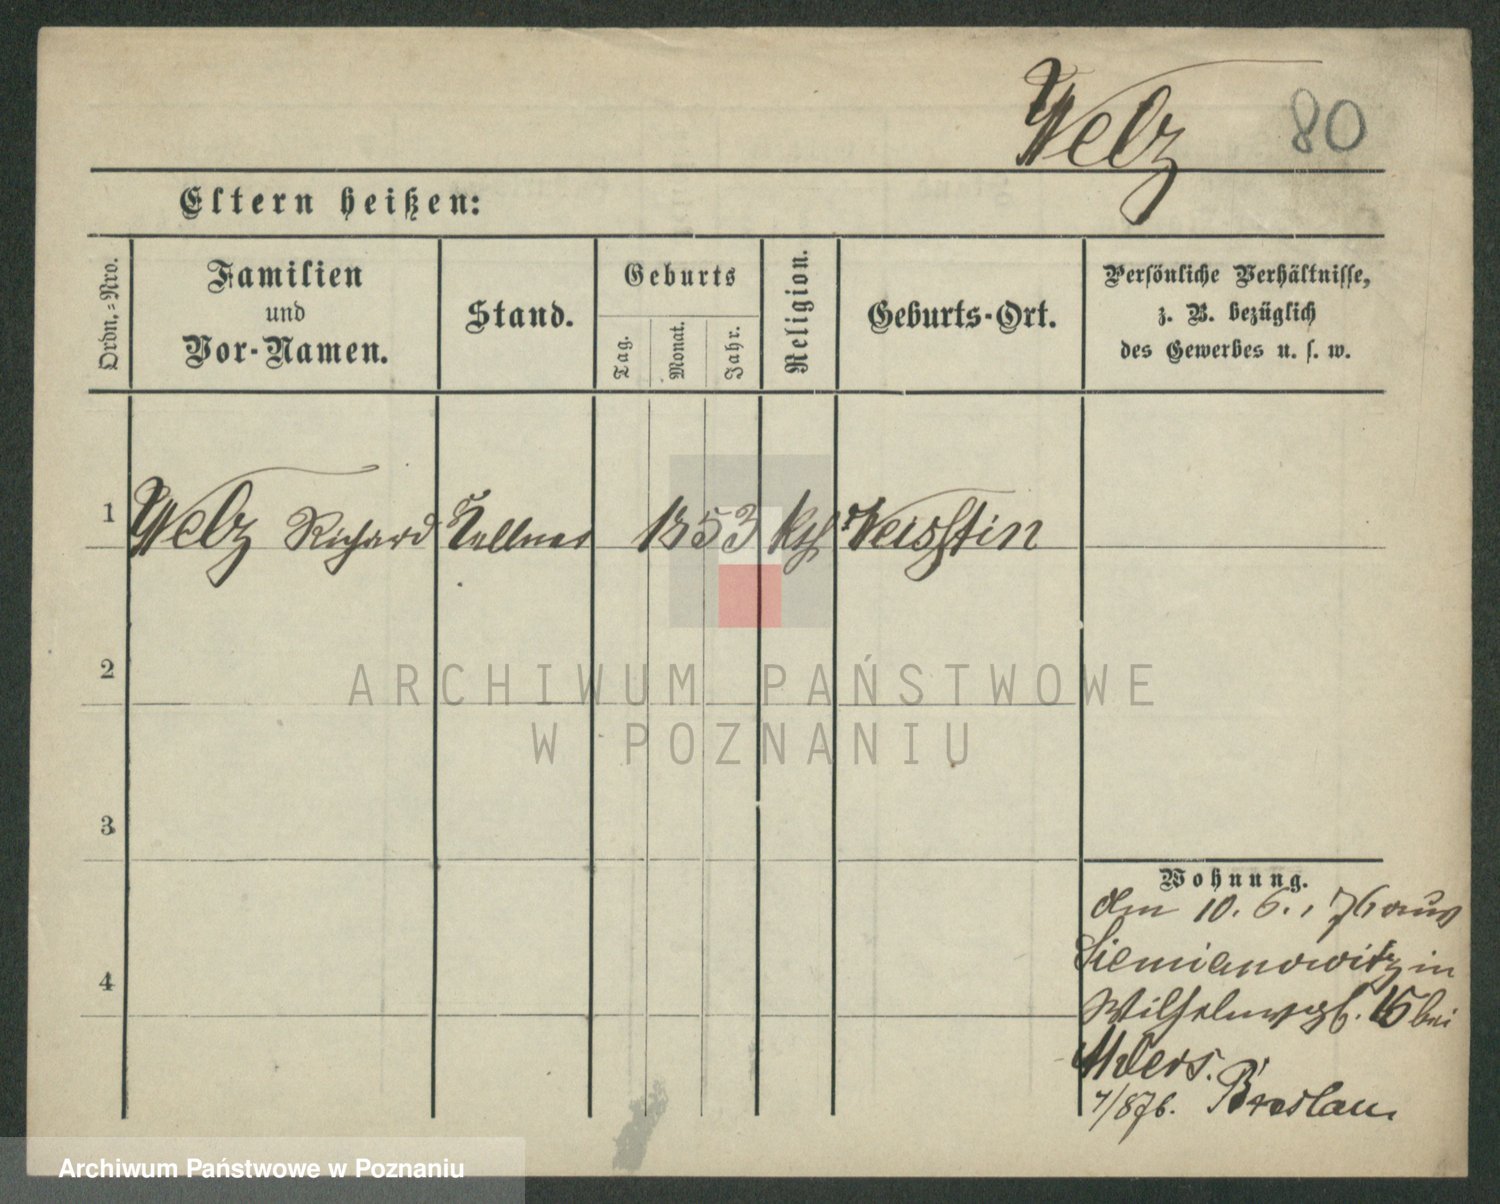 Welz 80
Eltern heißen:
Ordn.-Nro.
Familien
und
Vor-Namen.
Stand.
Geburts
Tag.
Monat.
Jahr.
Religion.
Geburts-Ort.
Persönliche Verhältnisse,
z. B. bezüglich
des Gewerbes u. s. w.
1 Welz Richard Kellner 1853 kth
2
ARCHIWUM PAŃSTWOWE
W POZNANIU
3
Wohnung.
am 10. 6. 76 aus
Siemianowitz in
4
Wilhelmspl. 15 bei
7/876. Breslau.
Archiwum Państwowe w Poznaniu